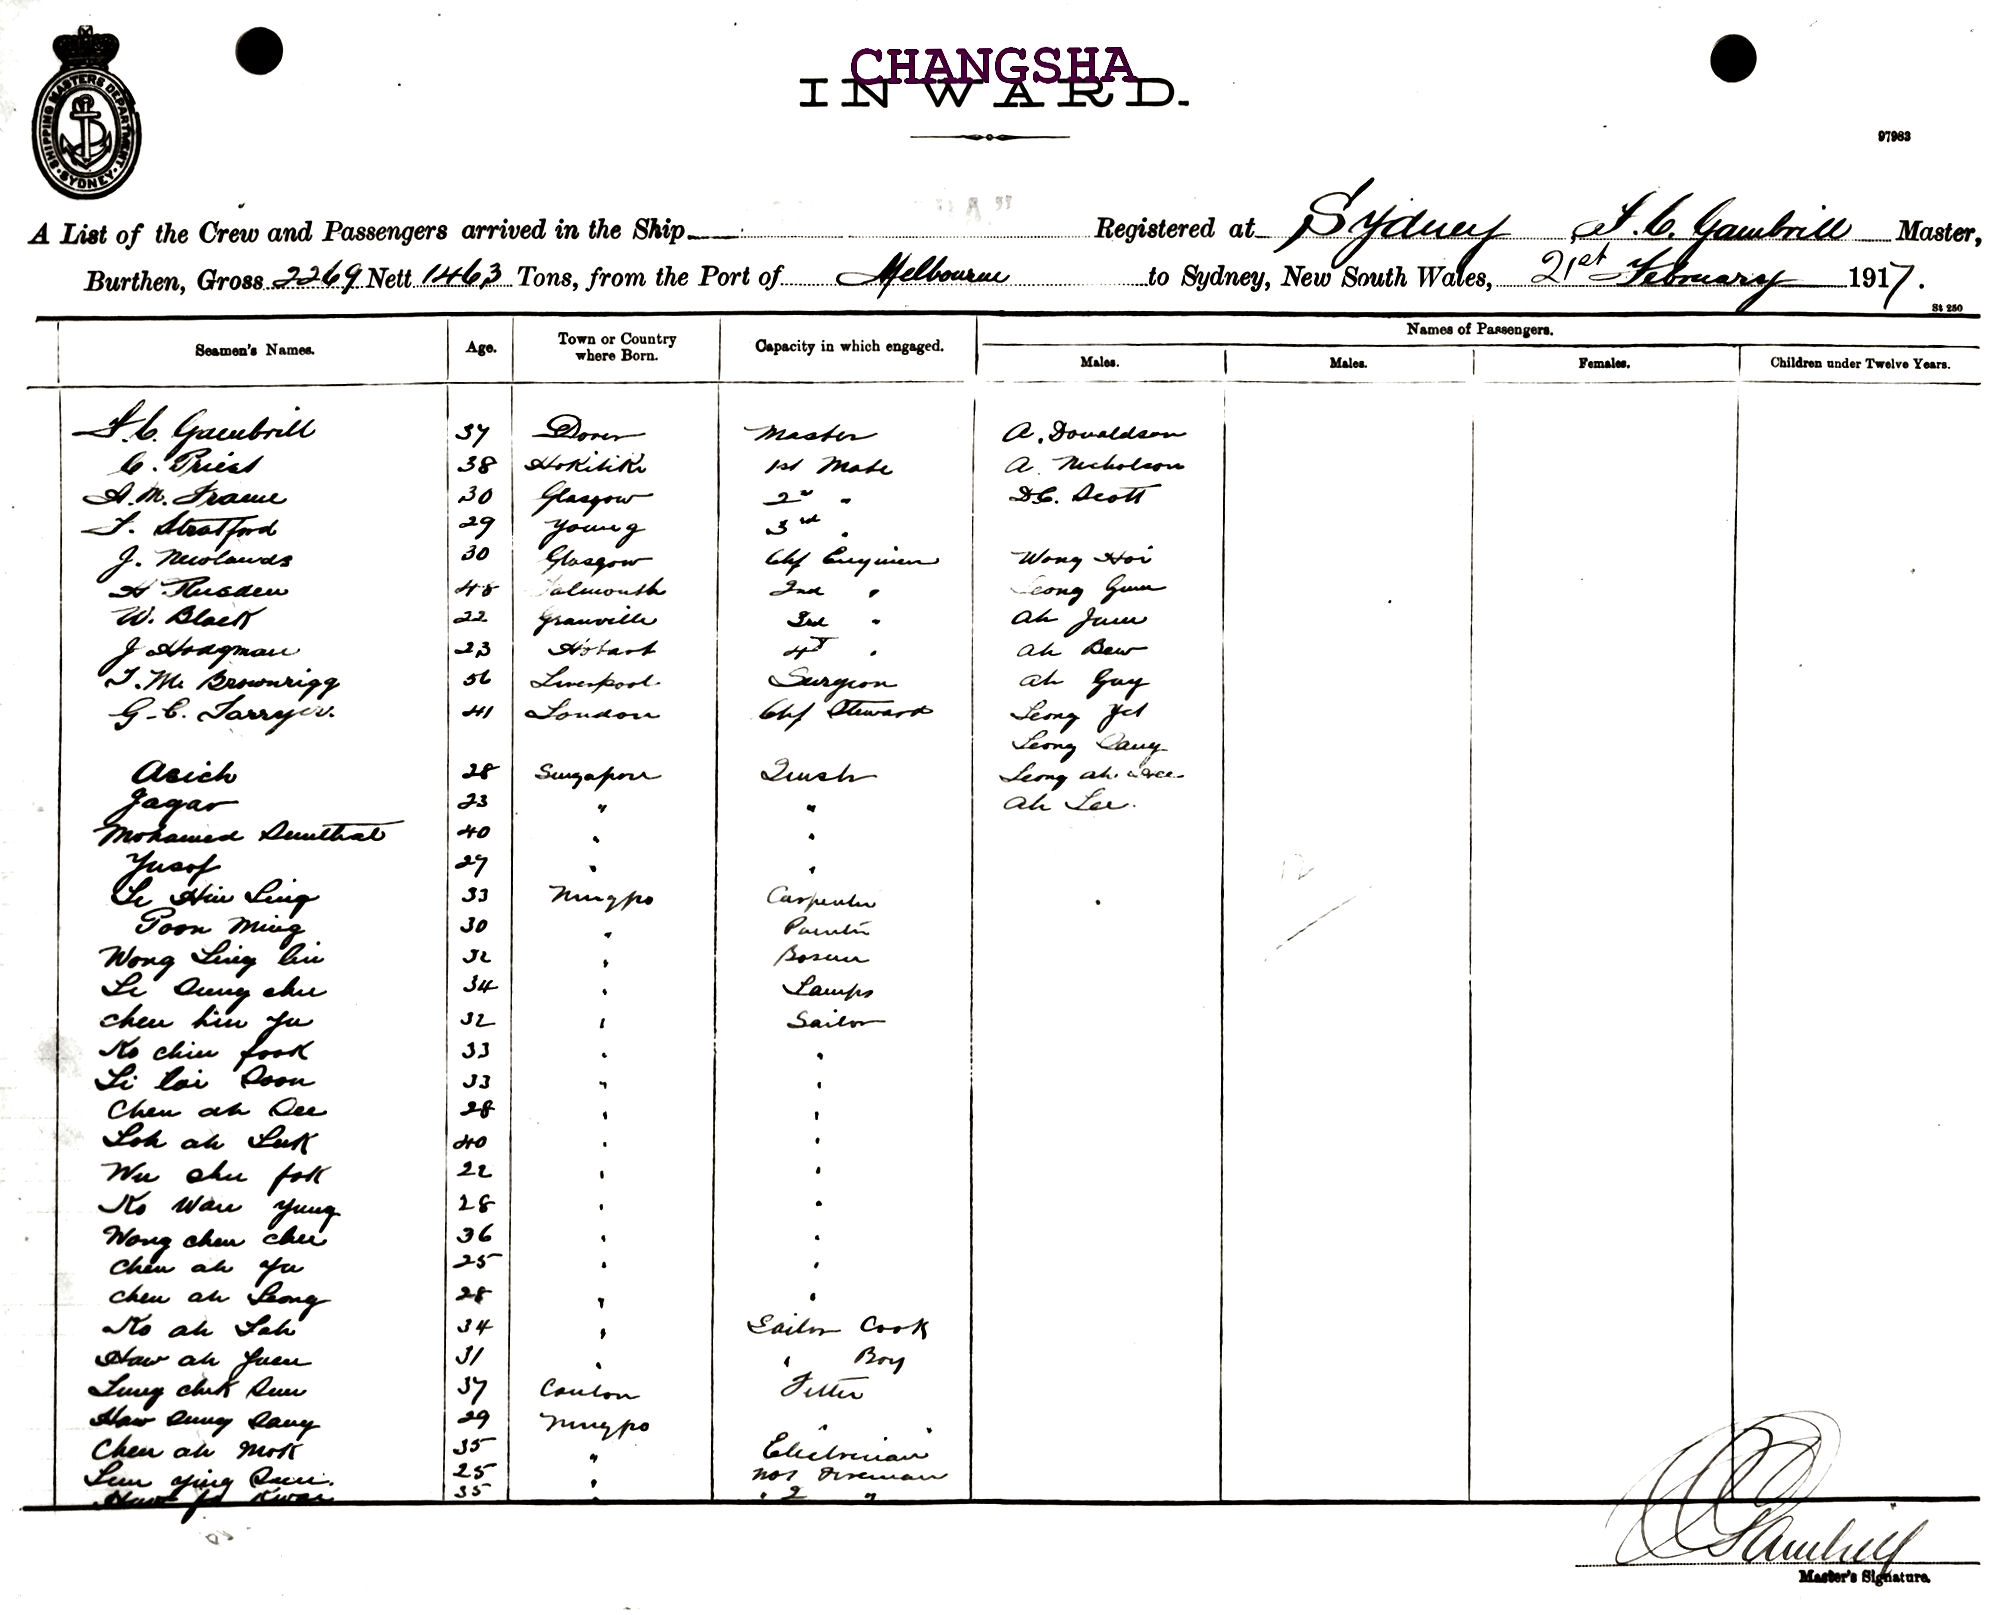 CHANGSHA
INWARD.
SHIPPING MASTERS DEPARTMENT SYDNEY
97983
A List of the Crew and Passengers arrived in the Ship Registered at Sydney F. C. Gambrill Master,
Burthen, Gross 2269 Nett 1463 Tons, from the Port of Melbourne to Sydney, New South Wales, 21st February 1917.
St 250
Names of Passengers.
Seamen's Names. Age. Town or Country where Born. Capacity in which engaged. Males. Males. Females. Children under Twelve Years.
F. C. Gambrill 37 Dover Master A. Donaldson
C. Priest 38 Hokitika 1st Mate A. Nicholson
A. M. Frame 30 Glasgow 2nd " D. C. Scott
F. Stratford 29 Young 3rd "
J. Newlands 30 Glasgow Chf Engineer Wong Hoi
H Rusden 48 Falmouth 2nd " Leong Gum
W. Black 22 Granville 3rd " Ah Jum
J Hodgman 23 Hobart 4th " Ah Bew
T. Mc Brownrigg 56 Liverpool Surgeon Ah Guy
G. C. Tarryer. 41 London Chf Steward Leong Yet
Leong Sang
Asich 28 Singapore Leong Ah
Jagar 23 " " Ah Lee.
Mohamed 40 " "
Yusof 27 " "
Le Hin Ling 33 Ningpo Carpenter
Poon Ming 30 " Painter
Wong Ling 32 " Bosun
Le Sung chu 34 " Lamps
Chen hin Yu 32 " Sailor
Ko chin fook 33 " "
Li Soon 33 " "
Chen ah See 28 " "
Loh ah Luk 40 " "
Wu chu fok 22 " "
Ko Wan Yung 28 " "
Wong chen chee 36 " "
Chen ah Yu 25 " "
Chen ah Leong 28 " "
Ko ah Loh 34 " Sailor Cook
Haw ah Yuen 31 " " Boy
Lung chik Sun 37 Canton Fitter
Haw Sung Sang 29 Ningpo " "
Chen ah Mok 35 " Electrician
Lum Ying 25 " No1 Fireman
35 " " 2 "
Gambrill
Master's Signature.